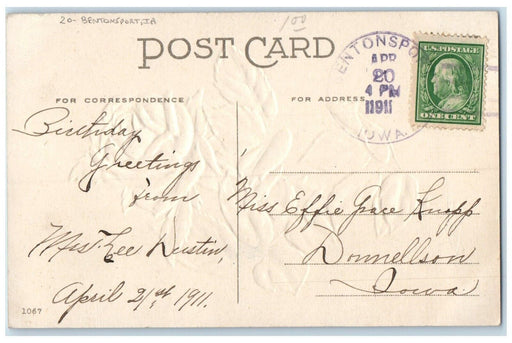 20- BENTONSPORT, IA
1.00
POST CARD
ENTONSPO
APR
20
4 PM
1911
IOWA.
U.S. POSTAGE
ONE CENT
FOR CORRESPONDENCE
FOR ADDRESS
Birthday
Greetings
from
Mrs. Lee Dustin,
April 21st, 1911.
Miss Effie Grace Knapp
Donnellson
Iowa
1067